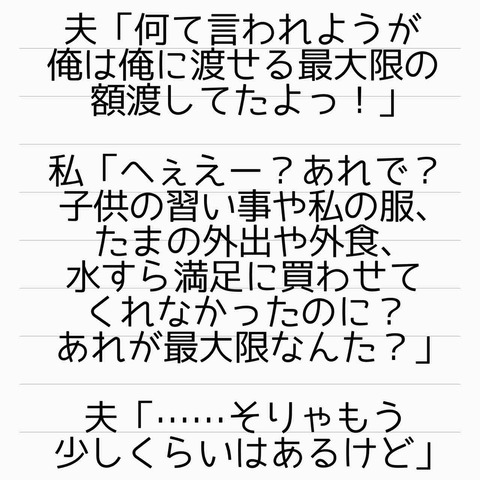 夫「何て言われようが
俺は俺に渡せる最大限の
額渡してたよっ！」
私「へぇえー？あれで？
子供の習い事や私の服、
たまの外出や外食、
水すら満足に買わせて
くれなかったのに？
あれが最大限なんた？」
夫「……そりゃもう
少しくらいはあるけど」